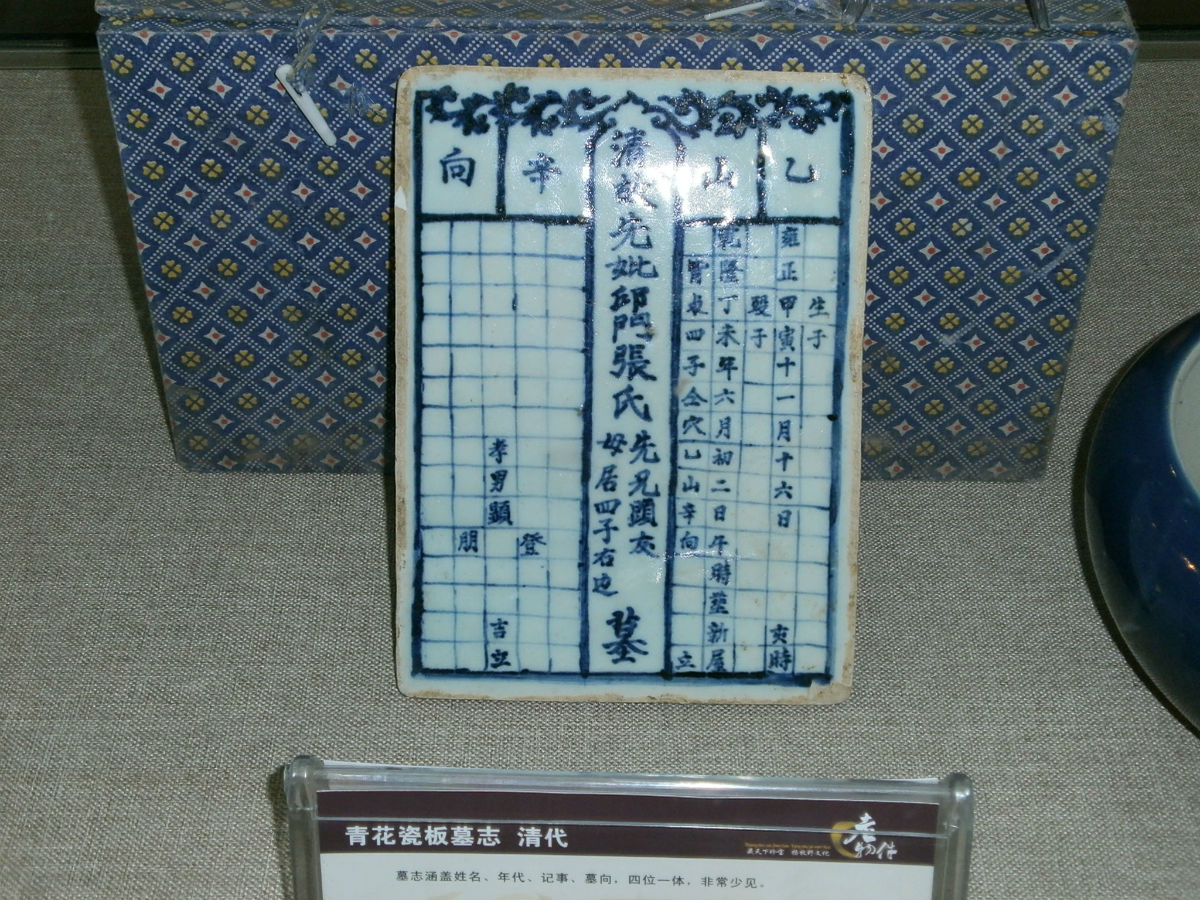 乙山
辛向
清故先妣邱門張氏
先兄顕友
母居四子右边
墓
生子
雍正甲寅十一月十六日
亥時
歿子
乾隆丁未年六月初二日午時塟新屋
背皮四子仝穴乙山辛向
立
登
孝男顕
朋
吉立
青花瓷板墓志 清代
老物件
墓志涵盖姓名、年代、记事、墓向,四位一体,非常少见。